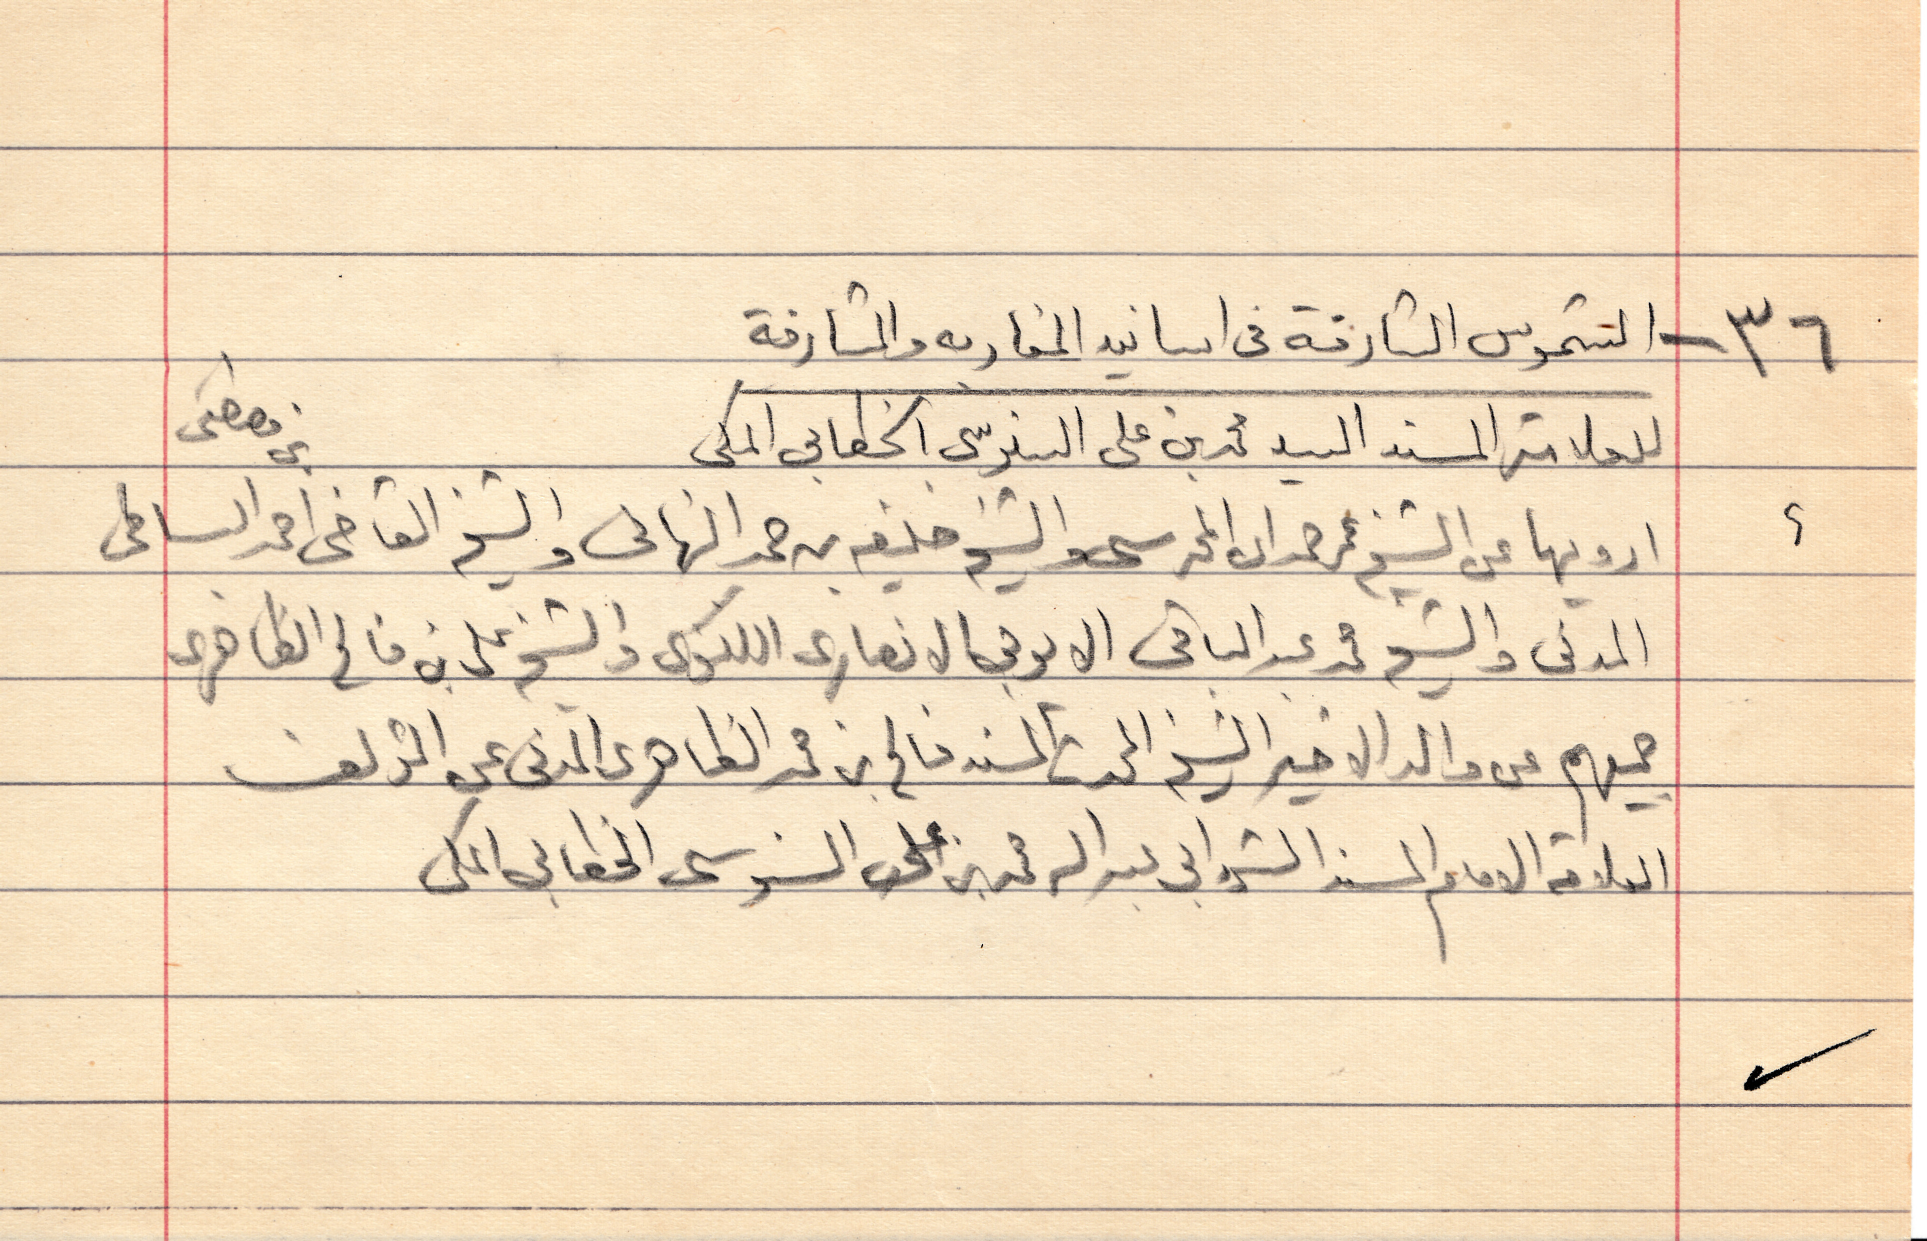 ٣٦ - الشموس الشارقة فى اسانيد المغاربه والمشارقة
للعلامة المسند السيد محمد بن على السنوسى الخطابى المكى
ارويها عن الشيخ عمر حمدان المحرسى والشيخ خليفه بن حمد النبهانى والشيخ القاضى احمد الساطى
المدنى والشيخ محمد عبد الباقى الايوبى الانصارى اللكنوى والشيخ على بن فالح الظاهرى
جميعهم عن والد الاخير الشيخ المحدث المسند فالح بن محمد الظاهرى المدنى عن المؤلف
العلامة الامام المسند الشهير ابى عبد الله محمد بن على السنوسى الخطابى المكى